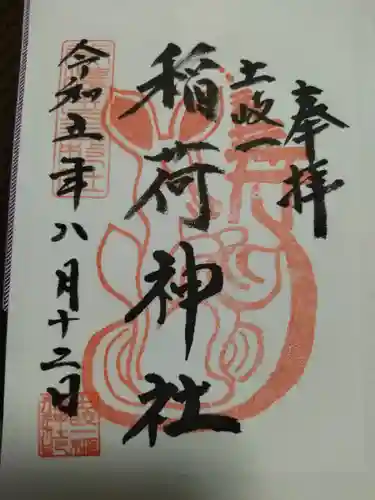 奉拝
土支一
稲荷神社
令和五年八月十二日